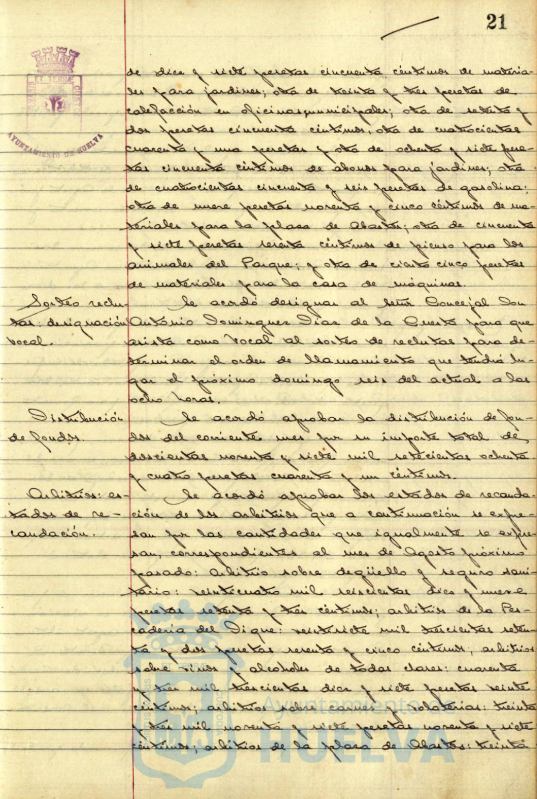 21
AYUNTAMIENTO DE HUELVA
de diez y siete pesetas cincuenta céntimos de materia-
les para jardines; otra de treinta y tres pesetas de
calefacción en oficinas municipales; otra de setenta y
dos pesetas cincuenta céntimos; otra de cuatrocientas
cuarenta y una pesetas y otra de ochenta y siete pese-
tas cincuenta céntimos de abonos para jardines; otra
de cuatrocientas cincuenta y seis pesetas de gasolina;
otra de nueve pesetas noventa y cinco céntimos de ma-
teriales para la plaza de Abastos; otra de cincuenta
y siete pesetas sesenta céntimos de pienso para los
animales del Parque; y otra de ciento cinco pesetas
de materiales para la casa de máquinas.
Sorteo reclu-
tas: designación
vocal.
Se acordó designar al Señor Concejal Don
António Domínguez Díaz de la Cuesta para que
asista como Vocal al sorteo de reclutas para de-
terminar el orden de llamamiento que tendrá lu-
gar el próximo domingo seis del actual a las
ocho horas.
Distribución
de fondos.
Se acordó aprobar la distribución de fon-
dos del corriente mes por su importe total de
doscientas noventa y siete mil setecientas ochenta
y cuatro pesetas cuarenta y un céntimos.
Arbitrios: es-
tados de re-
caudación.
Se acordó aprobar los estados de recauda-
ción de los arbitrios que a continuación se expre-
san por las cantidades que igualmente se expre-
san, correspondientes al mes de Agosto próximo
pasado: arbitrio sobre degüello y seguro sani-
tario: veinticuatro mil seiscientas diez y nueve
pesetas setenta y tres céntimos; arbitrios de la Pes-
cadería del Dique: veintisiete mil trescientas seten-
ta y dos pesetas sesenta y cinco céntimos; arbitrios
sobre vinos y alcoholes de todas clases: cuarenta
y tres mil trescientas diez y siete pesetas veinte
céntimos; arbitrios sobre carnes y volaterías: treinta
y tres mil noventa y siete pesetas noventa y siete
céntimos; arbitrios de la plaza de Abastos: treinta
Ayuntamiento
HUELVA